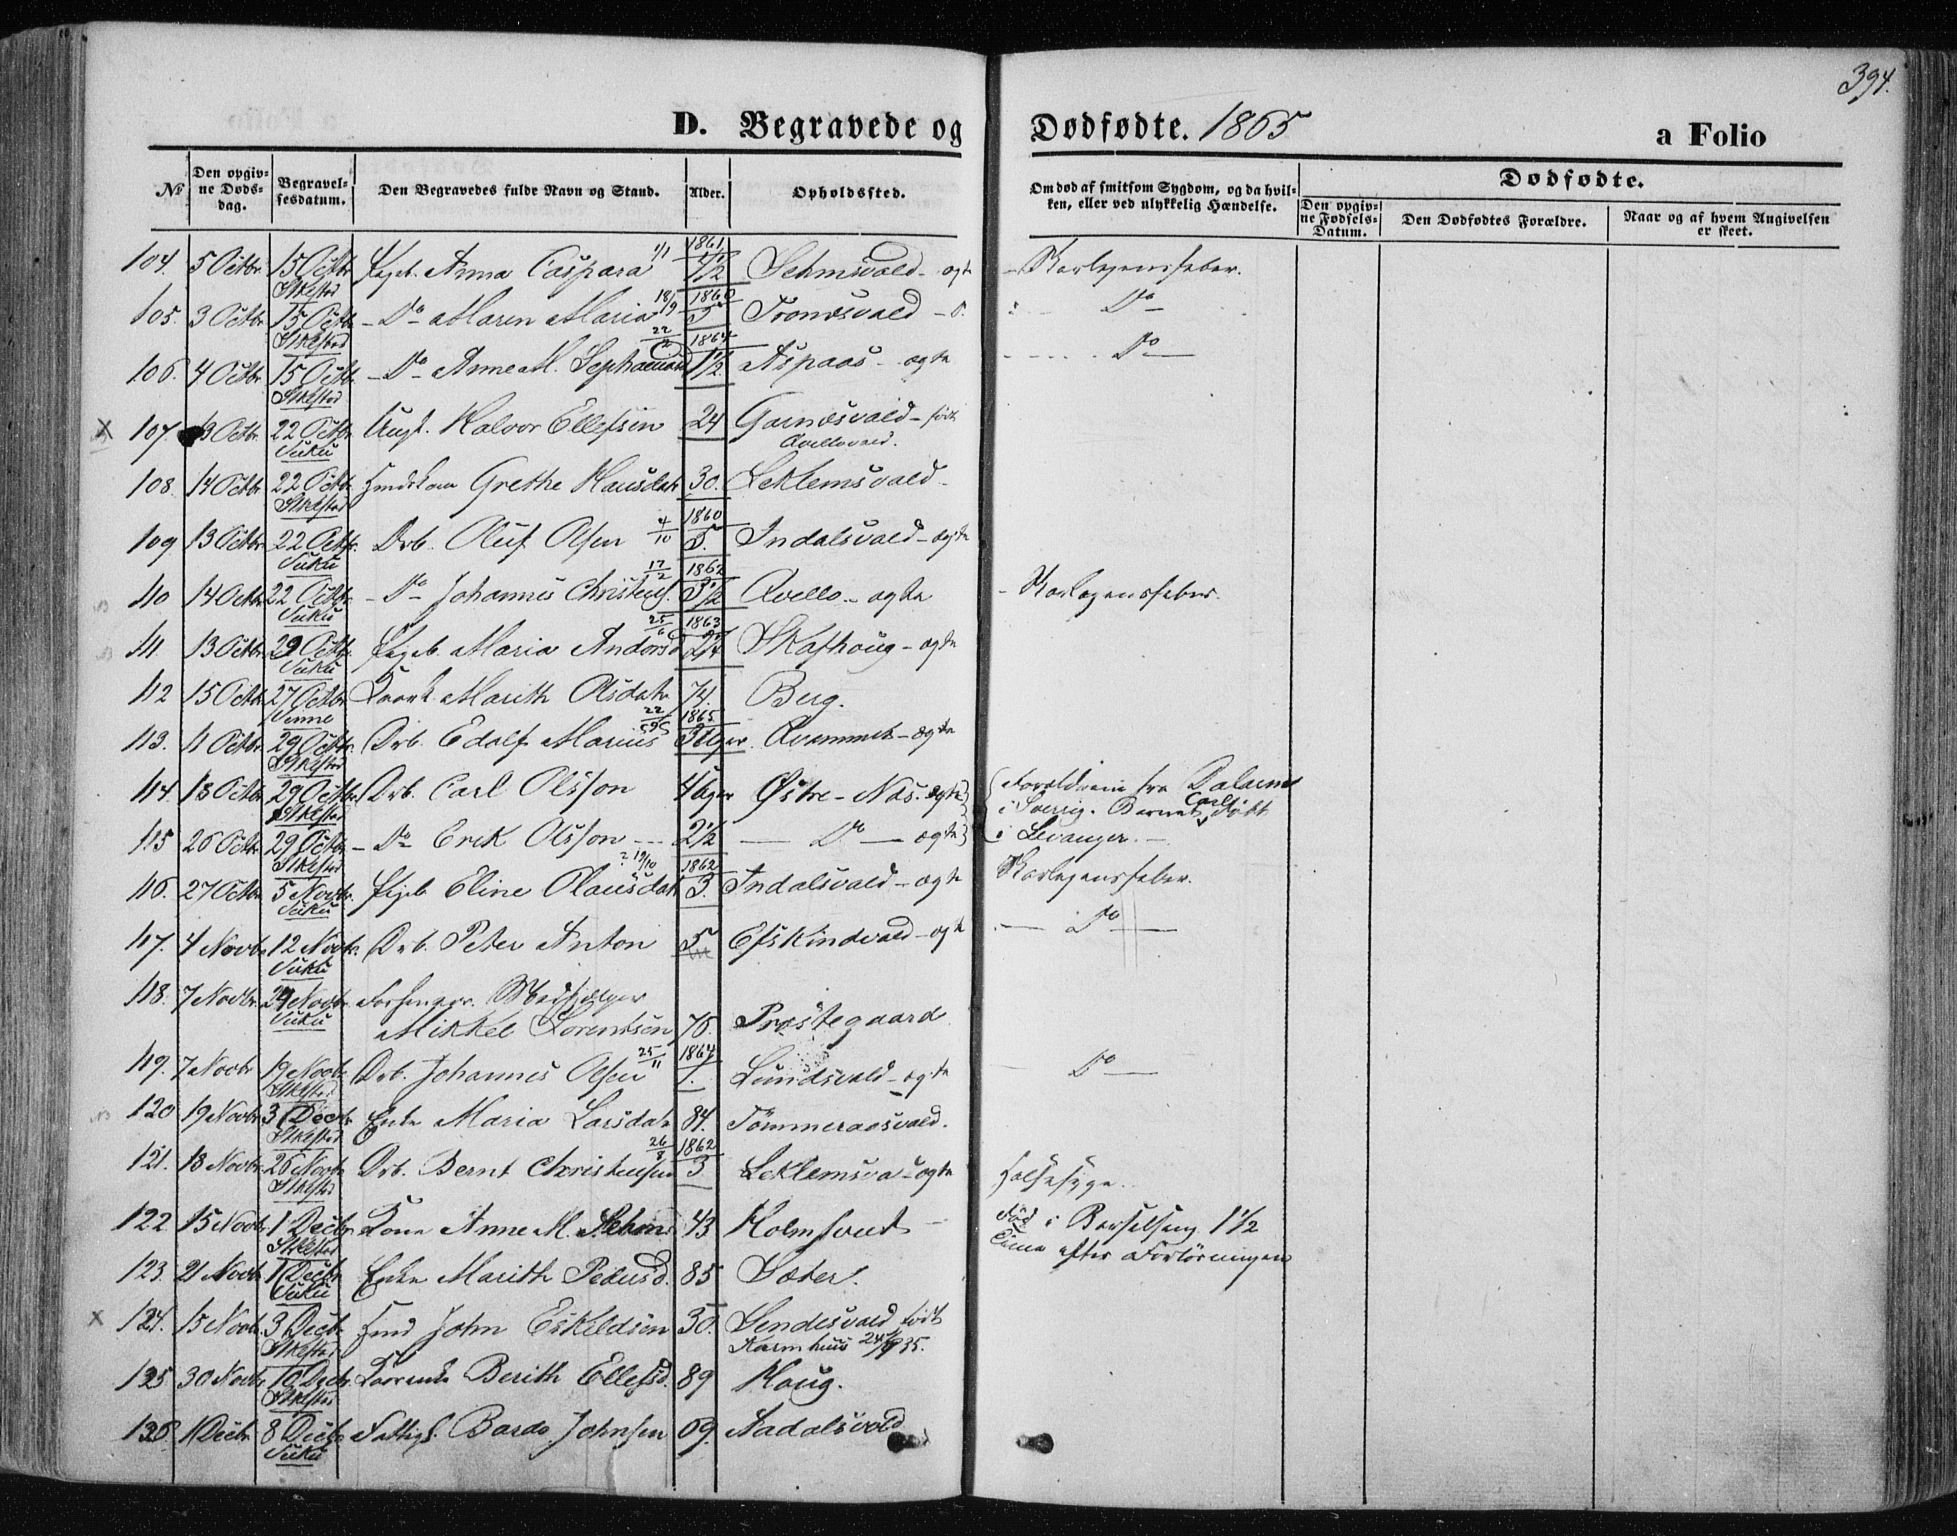 394.
D. Begravede og Dødfødte. 1865 a Folio
№ | Den opgivne Døds-dag. | Begravelsesdatum. | Den Begravedes fulde Navn og Stand. | Alder. | Opholdssted. | Om død af smitsom Sygdom, og da hvilken, eller ved ulykkelig Hændelse. | Dødfødte. | Den opgivne Fødsels-Datum. | Den Dødfødtes Forældre. | Naar og af hvem Angivelsen er skeet.
104. 5 Octbr. 15 Octbr Stkstad Pigeb. Anna Caspara 1/1 1861 4 1/2 Sehmsvald - ægte - Skarlagensfeber.
105. 3 Octbr 15 Octbr Stkstad - Do Maren Maria 18/9 1860 5 Tronæsvald - Do
106. 4 Octbr 15 Octbr Stkstad - Do Anne M. 22/2 1864 1 1/2 Aspaas - ægte Do
107 Octbr 22 Octbr Vuku Ungk. Halvor Ellefsen 24 Garnæsvald - født
Qvellovald.
108. 14 Octbr 22 Octbr Stkstad Grethe Hansdatr 30. Leklemsvald -
109 13 Octbr 22 Octbr. Vuku Drb. Oluf Olsen 4/10 1860 5. Indalsvald - ægte
110 14 Octbr 22 Octbr. Vuku - Do Johannes Christens. 17/2 1862 3 1/2 Qvello - ægte - Skarlagensfeber.
111. 13 Octbr 29 Octbr. Vuku Pigeb Maria Andersd 25/6 1863 Skafhoug - ægte
112 15 Octbr 27 Octbr Vinne Marith Olsdatr 74. Berg.
113. 11 Octbr 29 Octbr Stkstad Drb. Edolf Marius 22/9 1865 3 Uger. Qvammet - ægte
114. 18 Octbr 29 Octbr. Stkstad Drb. Carl Olsson 4 Uger Østre - Næs. ægte Forældrene fra Dalarne
i Sverrig. Barnet Carl født
115 26 Octbr 29 Octbr Stkstad - Do Erik Olsson 2 1/2 - Do - ægte i Levanger. -
116. 27 Octbr 5 Novbr. Vuku Pigeb Eline Olausdatr ? 19/10 1862 3. Indalsvald - ægte Skarlagensfeber.
117. 4 Novbr 12 Novbr. Vuku Drb. Peter Anton 5 Efskindvald - ægte Do
118. 7 Novbr. 24 Novbr. Vuku Medhjelper
Mikkel Lorentsen 76. Præstegaard
119. 7 Novbr 19 Novbr. Stkstad Drb. Johannes Olsen 25/11 1864 1. Lundsvald - ægte Do
120 19 Novbr 3 Decbr Stkstad Enke Maria Larsdatr 84. Tømmeraasvald.
121. 18 Novbr 26 Novbr Stkstad Drb. Bernt Christensen 26/8 1862 3 Leklemsva - ægte Halssyge.
122 15 Novbr 1 Decbr Stkstad Kone Anne M. 43 Holmsvet - Død i Barselseng 1 1/2
Time efter Forløsningen
123. 21 Novbr 1 Decbr Vuku Enke Marith Pedersd. 85 Sæter.
124. 15 Novbr. 3 Decbr Stkstad John Eskeldsen 30. født
35.
125 30 Novbr 10 Decbr. Stkstad Berith Ellefsd. 89 Haug.
126. 1 Decbr. 8 Decbr Vuku Bardo Johnsen 69. Aadalsvald